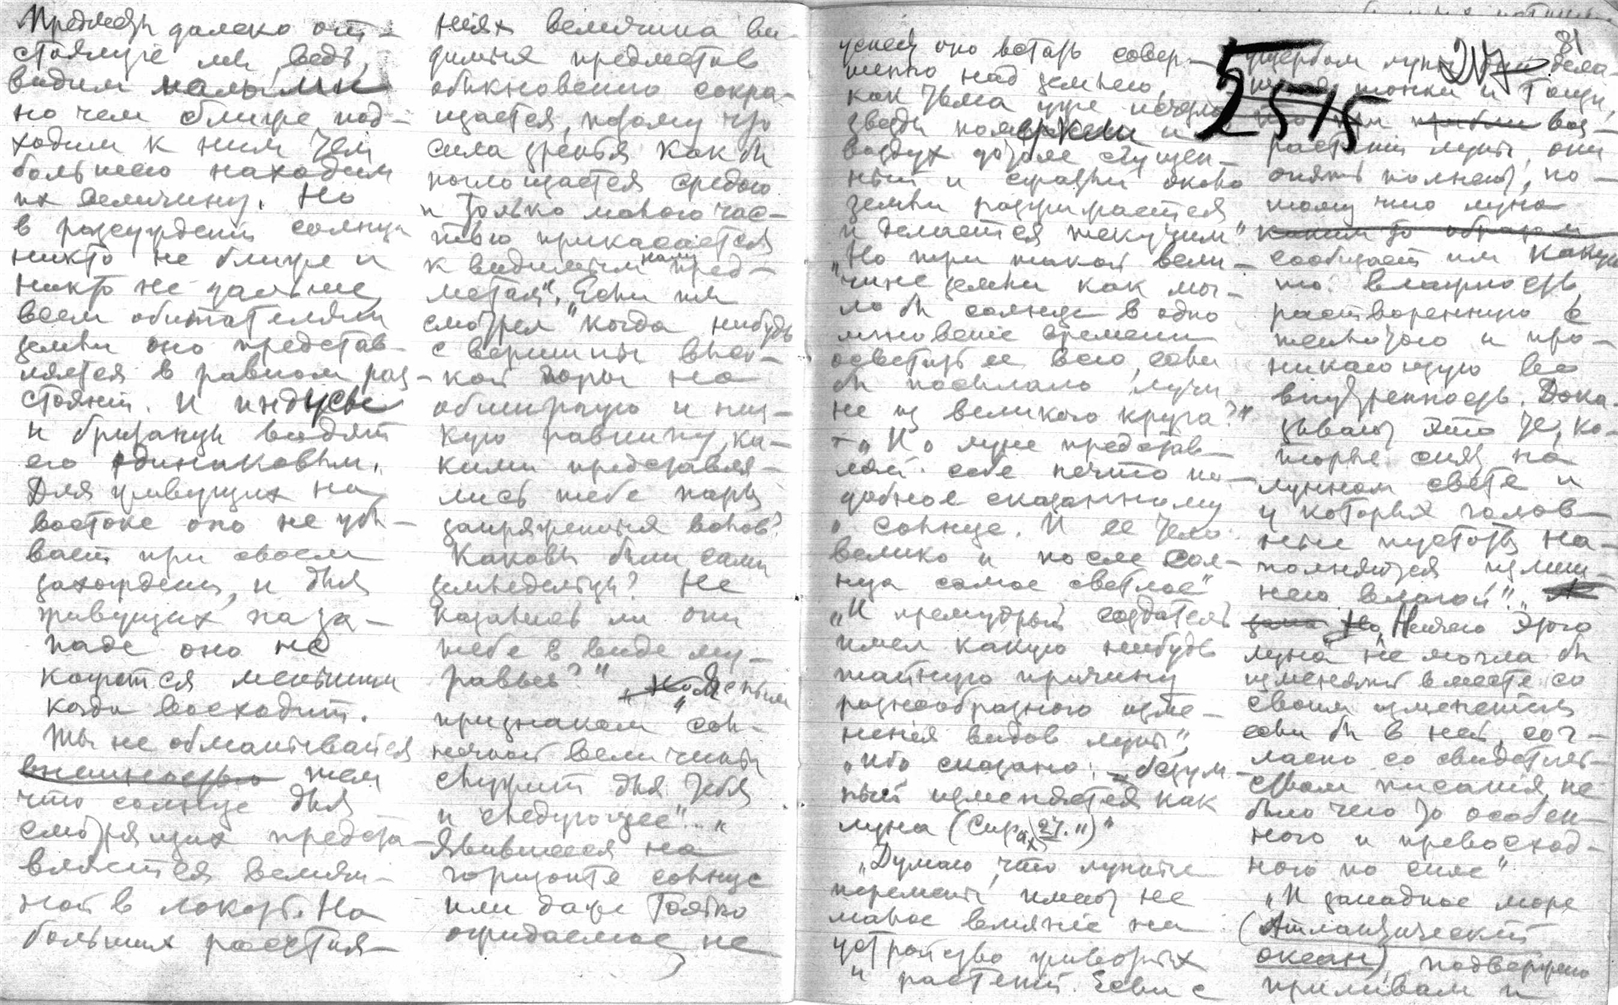 Предметы далеко отс-
тоящие мы ведь,
видим малыми
но чем ближе под-
ходим к ним тем
большею находим
их величину. Но
в рассуждении солнца
никто не ближе и
никто не дальше,
всем обитателям
земли оно представ-
ляется в равном рас-
стоянии. И индусы
и британцы видят
его одинаковым.
Для живущих на
востоке оно не убы-
вает при своем
захождении, и для
живущих на за-
паде оно не
кажется меньшим
когда восходит.
Ты не обманывайся
внешностью тем
что солнце для
смотрящих предста-
вляется величи-
ной в локоть. На
больших расстоя-
ниях величина ви-
димых предметов
обыкновенно сокра-
щается, потому что
сила зрения как бы
поглощается средою
и только малою час-
тью прикасается
к видимым нами пред-
метам". "Если ты
смотрел когда нибудь
с вершины высо-
кой горы на
обширную и низ-
кую равнину, ка-
кими представля-
лись тебе пары
запряженных волов?
Каковы были сами
земледельцы? Не
казались ли они
тебе в виде му-
равьев?"
признаком сол-
нечной величины
служит для тебя
и следующее".. "
Явившееся на
горизонте солнце
или даже только
ожидаемое не
успеет оно встать совер-
шенно над землею,
как тьма уже исчезла
звезды померкли и
воздух дотоле сгущен-
ный и сжатый около
земли разрежается
и делается текучим"
"Но при такой вели-
чине земли как мог-
ло бы солнце в одно
мгновение времени
осветить ее всю, если
бы посылало лучи
не из великого круга?"
"И о луне представ-
ляй себе нечто по-
добное сказанному
о солнце. И ее тело
велико и после сол-
нца самое светлое"
"И премудрый создатель
имел какую нибудь
тайную причину
разнообразного изме-
нения видов луны",
"ибо сказано: – безум-
ный изменяется как
луна (Сирах 27. 11)"
"Думаю, что лунные
перемены имеют не
малое влияние на
устройство животных
и растений. Если с
81
217
2515
ущербом луны они дела-
тонки и тощи,
воз-
растании луны, они
опять полнеют, по-
тому что луна
каким то образом
сообщает им какую
то влажность
растворенную с
теплотою и про-
никающую во
внутренность. Дока-
зывают это те, ко-
торые спят на
лунном свете и
у которых голов-
ные пустоты на-
полняются излиш-
нею влагой".
Ничего этого
луна не могла бы
изменять вместе со
своим изменением
если бы в ней, сог-
ласно со свидетель-
ством писания, не
было чего то особен-
ного и превосход-
ного по силе"
"И западное море
(Атлантический
океан), подвержено
приливам и